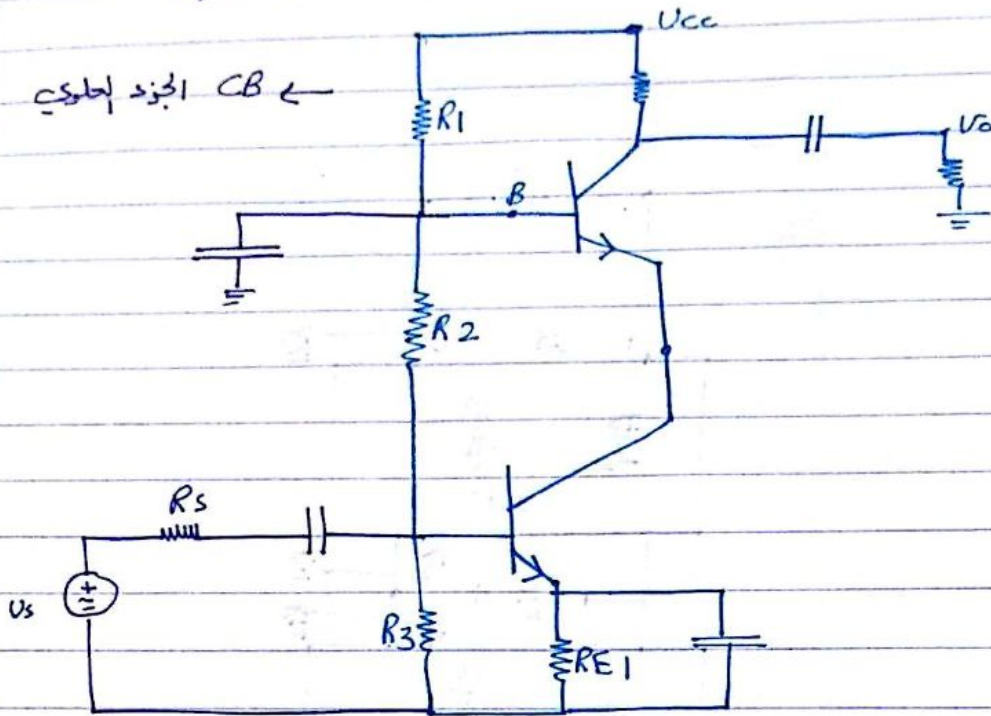 Ucc
الجزء العلوي CB ←
R1
Uo
B
R2
Rs
Us
R3
RE1